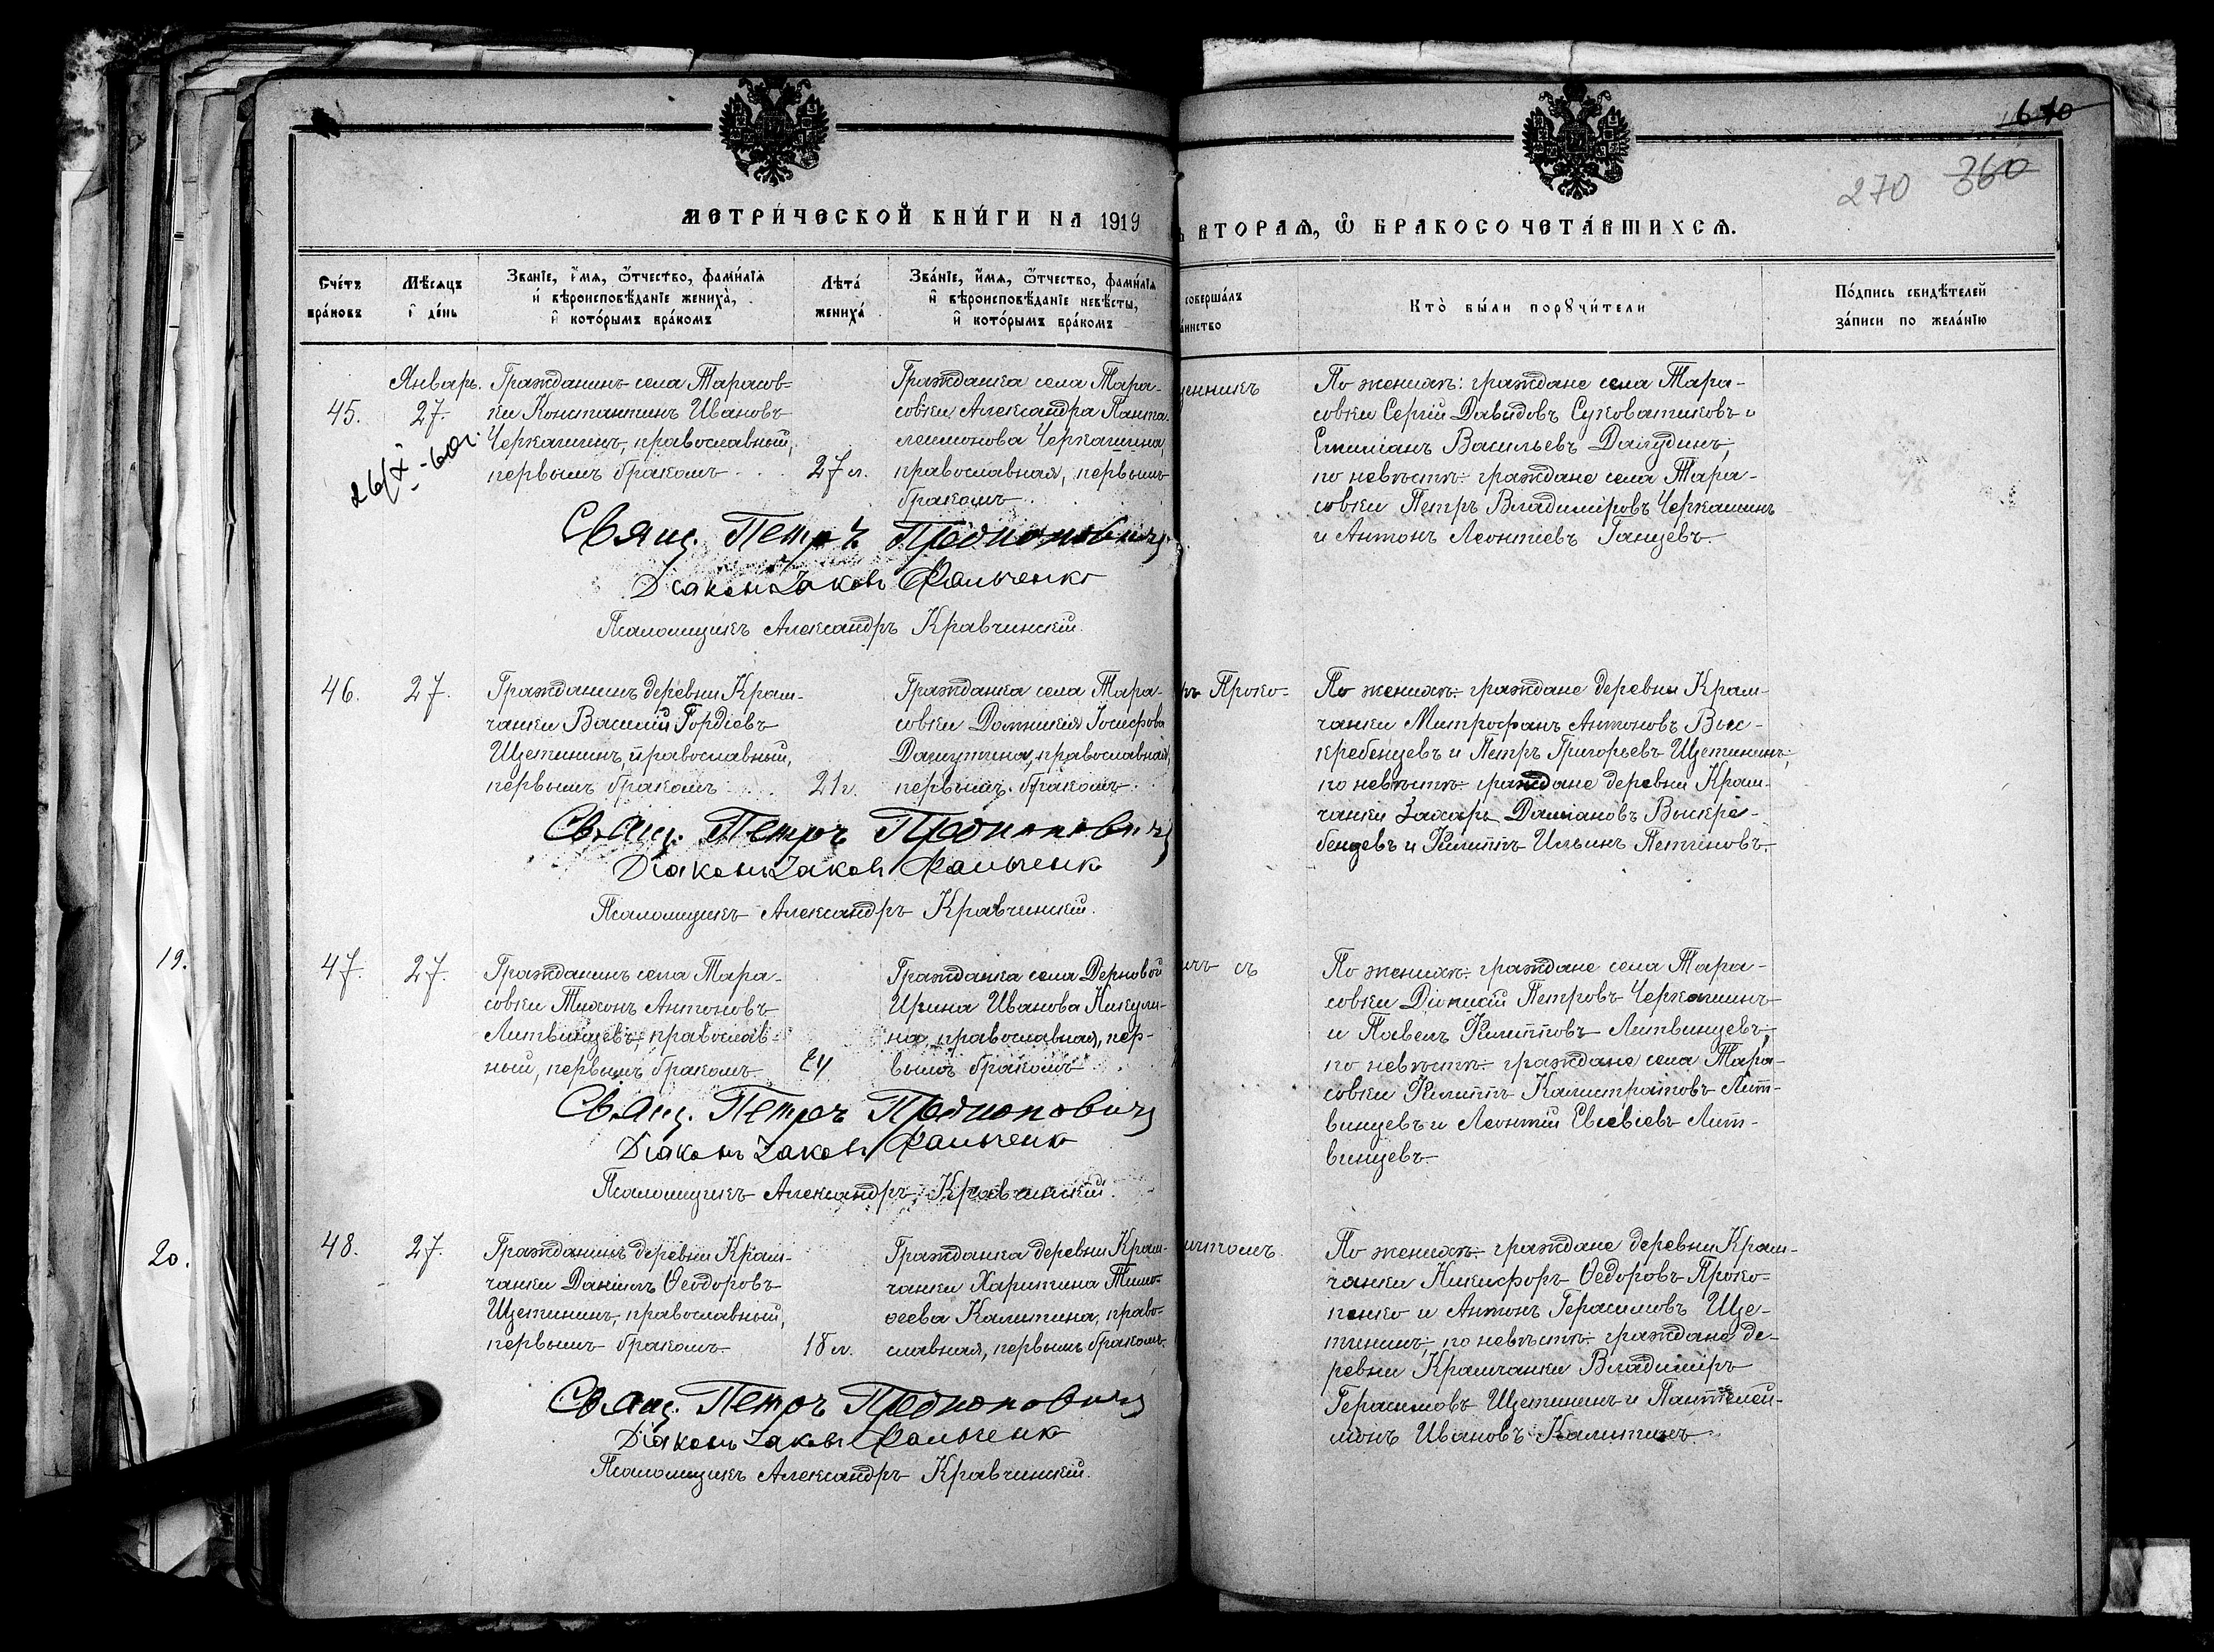 610
270 360
МЕТРИ́ЧЕСКОЙ КНИ́ГИ НА 1919
ВТОРАѦ, Ѡ҆ БРАКОСОЧЕТА́ВШИХСѦ.
Сче́тъ бра́ковъ
Мѣ́сяцъ и҆ де́нь
Зва́нїе, и҆́мя, ѻ҆́тчество, фами́лїѧ
и҆ вѣроисповѣ́данїе жениха̀,
и҆ кото́рымъ бра́комъ
Лѣта́ жениха́
Зва́нїе, и҆́мя, ѻ҆́тчество, фами́лїѧ
и҆ вѣроисповѣ́данїе невѣ́сты,
и҆ кото́рымъ бра́комъ
соверша́лъ
Кто̀ бы́ли порꙋчи́тели
По́дпись свидѣ́телей
за́писи по жела́нїю
45.
Январь.
27.
Гражданинъ села Тарасов-
ки Константинъ Ивановъ
Черкашинъ, православный,
первымъ бракомъ
27 л.
Гражданка села Тара-
совки Александра Панте
леимонова Черкашина,
православная, первымъ
бракомъ.
По женихѣ: граждане села Тара-
совки Сергій Давыдовъ Суковатиковъ и
Емиліанъ Васильевъ
по невѣстѣ: граждане села Тара-
совки Петръ Владиміровъ Черкашинъ
и Антонъ Леонтіевъ Ганцевъ.
Свящ. Петръ Прокопович
Діаконъ Іаковъ
Псаломщикъ Александръ Кравчинскій.
46.
27.
Гражданинъ деревни Крам-
чанки Василій Гордіевъ
Щетининъ, православный,
первымъ бракомъ
21 г.
Гражданка села Тара-
совки Домникія Іосифова
православная,
первымъ бракомъ.
Проко-
По женихѣ: граждане деревни Крам-
чанки Митрофанъ Антоновъ Вы-
кребенцевъ и Петръ Григорьевъ Щетининъ;
по невѣстѣ: граждане деревни Крам-
чанки Захаръ Даміановъ Выкре-
бенцевъ и Филиппъ Ильинъ
Свящ. Петръ Прокопович
Діаконъ Іаковъ
Псаломщикъ Александръ Кравчинскій.
19.
47.
27.
Гражданинъ села Тара-
совки Тихонъ Антоновъ
Литвинцевъ, православ-
ный, первымъ бракомъ.
24
Гражданка села Дерновой
Ирина Иванова Никули-
на, православная, пер-
вымъ бракомъ
съ
По женихѣ: граждане села Тара-
совки Діонисій Петровъ Черкашинъ
и Павелъ Филипповъ Литвинцевъ,
по невѣстѣ: граждане села Тара-
совки Филиппъ Калистратовъ Лит-
винцевъ и Леонтій Евсевіевъ Лит-
винцевъ.
Свящ. Петръ Прокопович
Діаконъ Іаковъ
Псаломщикъ Александръ Кравчинскій.
20.
48.
27.
Гражданинъ деревни Крам-
чанки Даніилъ Ѳеодоровъ
Щетининъ, православный,
первымъ бракомъ.
18 л.
Гражданка деревни Крам-
чанки Харитина Тимо-
ѳеева Калитина, право-
славная, первымъ бракомъ.
По женихѣ: граждане деревни Крам-
чанки Никифоръ Ѳедоровъ Проко-
пенко и Антонъ Герасимовъ Ще-
тининъ; по невѣстѣ: граждане де-
ревни Крамчанки Владиміръ
Герасимовъ Щетининъ и Пантелей-
монъ Ивановъ Калитинъ.
Свящ. Петръ Прокопович
Діаконъ Іаковъ
Псаломщикъ Александръ Кравчинскій.